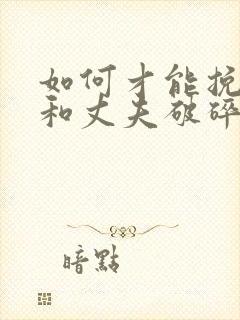 如何才能挽
和丈夫破碎
暗點